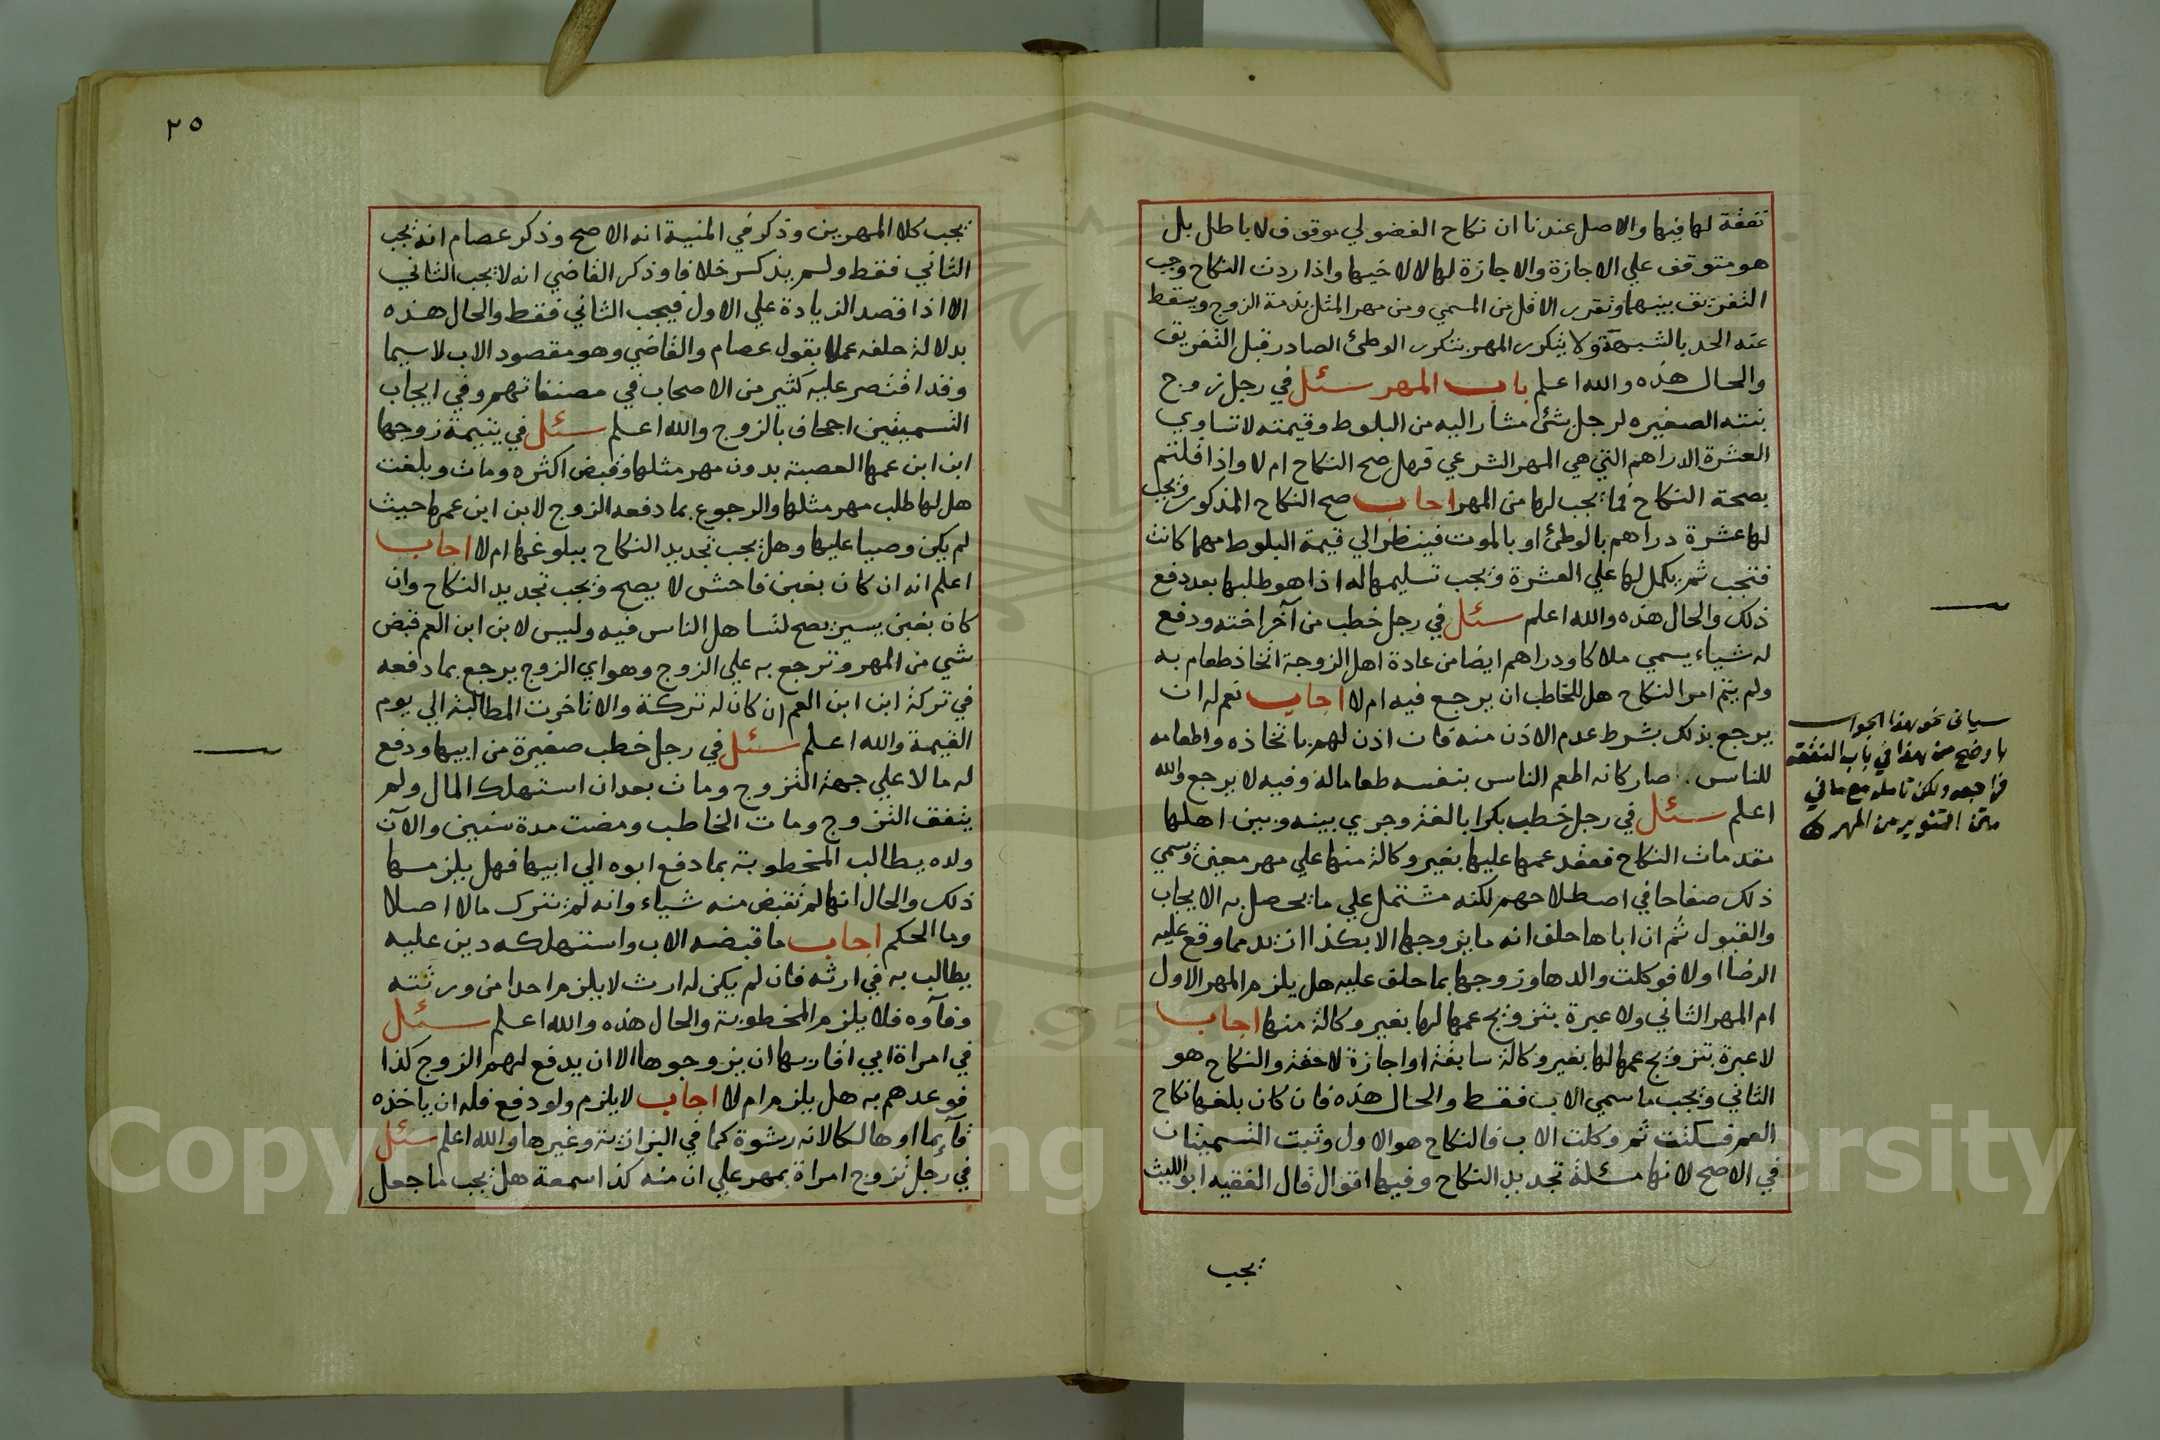 نفقة لها فيها والاصل عندنا ان نكاح الفضولي موقوف لا باطل بل
هو متوقف علي الاجازة والاجازة لها لا لاخيها واذا ردت النكاح وجب
التفريق بينهما وتقرر الاقل من المسمي ومن مهر المثل بذمة الزوج ويسقط
عنه الحد بالشبهة ولا يتكرر المهر بتكرر الوطئ الصادر قبل التفريق
والحال هذه والله اعلم باب المهر سئل في رجل زوج
بنته الصغيره لرجل بشئ مشار اليه من البلوط وقيمته لا تساوي
العشرة الدراهم التي هي المهر الشرعي فهل صح النكاح ام لا واذا قلتم
بصحة النكاح فما يجب لها من المهر اجاب صح النكاح المذكور ويجب
لها عشرة دراهم بالوطئ او بالموت فينظر الي قيمة البلوط مهما كانت
فتجب ثم يكمل لها علي العشرة ويجب تسليمها له اذا هو طلبها بعد دفع
ذلك والحال هذه والله اعلم سئل في رجل خطب من آخر اخته ودفع
له شياء يسمي ملاكا ودراهم ايضا من عادة اهل الزوجة اتخاذ طعام به
ولم يتم امر النكاح هل للخاطب ان يرجع فيه ام لا اجاب نعم له ان
يرجع بذلك بشرط عدم الاذن منه فان اذن لهم باتخاذه واطعامه
للناس صار كانه اطعم الناس بنفسه طعاما له وفيه لا يرجع والله
اعلم سئل في رجل خطب بكرا بالغة وجري بينه وبين اهلها
مقدمات النكاح فعقد عمها عليها بغير وكالة منها علي مهر معين وسمي
ذلك صفاحا في اصطلاحهم لكنه مشتمل علي ما يحصل به الايجاب
والقبول ثم ان اباها حلف انه ما يزوجها الا بكذا ازيد مما وقع عليه
الرضا اولا فوكلت والدها وزوجها بما حلف عليه هل يلزم المهر الاول
ام المهر الثاني ولا عبرة بتزويج عمها لها بغير وكالة منها اجاب
لا عبرة بتزويج عمها لها بغير وكالة سابقة او اجازة لاحقة والنكاح هو
الثاني ويجب ما سمي الاب فقط والحال هذه فان كان بلغها نكاح
العم فسكتت ثم وكلت الاب فالنكاح هو الاول وثبت التسميتان
في الاصح لانها مسئلة تجديد النكاح وفيها اقوال قال الفقيه ابو الليث
يجب
سياتي نحو هذا الجواب
باوضح من هذا في باب النفقه
فراجعه ولكن تامله مع ما في
متن التنوير من المهر
٢٥
يجب كلا المهرين وذكر في المنية انه الاصح وذكر عصام انه يجب
الثاني فقط ولم يذكر خلافا وذكر القاضي انه لا يجب الثاني
الا اذا قصد الزيادة علي الاول فيجب الثاني فقط والحال هذه
بدلالة حلفه عملا بقول عصام والقاضي وهو مقصود الاب لاسيما
وقد اقتصر عليه كثير من الاصحاب في مصنفاتهم وفي ايجاب
التسميتين اجحاف بالزوج والله اعلم سئل في يتيمة زوجها
ابن ابن عمها العصبة بدون مهر مثلها وقبض اكثره ومات وبلغت
هل لها طلب مهر مثلها والرجوع بما دفعه الزوج لابن ابن عمها حيث
لم يكن وصيا عليها وهل يجب تجديد النكاح ببلوغها ام لا اجاب
اعلم انه ان كان بغبن فاحش لا يصح ويجب تجديد النكاح وان
كان بغبن يسير يصح لتساهل الناس فيه وليس لابن ابن العم قبض
شي من المهر وترجع به علي الزوج وهو اي الزوج يرجع بما دفعه
في تركة ابن ابن العم ان كان له تركة والا تاخرت المطالبة الي يوم
القيمة والله اعلم سئل في رجل خطب صغيرة من ابيها ودفع
له مالا علي جهة التزوج ومات بعد ان استهلك المال ولم
يتفق التزوج ومات الخاطب ومضت مدة سنين والآن
ولده يطالب المخطوبة بما دفع ابوه الي ابيها فهل يلزمها
ذلك والحال انها لم تقبض منه شياء وانه لم تترك مالا اصلا
وما الحكم اجاب ما قبضه الاب واستهلكه دين عليه
يطالب به في ارثه فان لم يكن له ارث لا يلزم احدا من ورثته
وفآوه فلا يلزم المخطوبة والحال هذه والله اعلم سئل
في امراة ابي اقاربها ان يزوجوها الا ان يدفع لهم الزوج كذا
فوعدهم به هل يلزم ام لا اجاب لا يلزم ولو دفع فله ان ياخذه
قآيما او هالكا لانه رشوة كما في البزازية وغيرها والله اعلم سئل
في رجل تزوج امراة بمهر علي ان منه كذا سمعة هل يجب ما جعل
Copyright © King Saud University